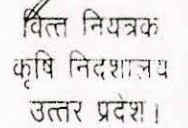 वित्त नियत्रक
कृषि निदशालय
उत्तर प्रदेश।